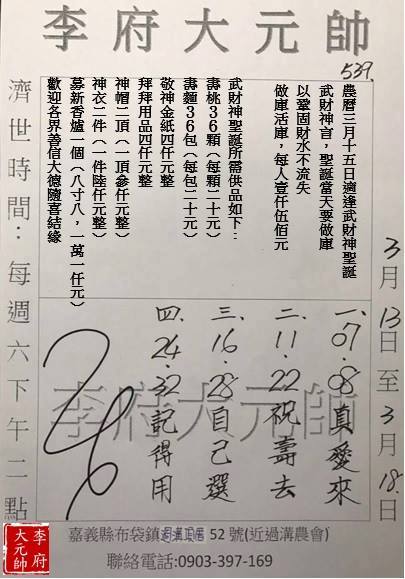 李府大元帥
539.
農曆三月十五日適逢武財神聖誕
武財神言,聖誕當天要做庫
以鞏固財水不流失
做庫活庫,每人壹仟伍佰元
武財神聖誕所需供品如下:
壽桃36顆(每顆二十元)
壽麵36包(每包二十元)
敬神金紙四仟元整
拜拜用品四仟元整
神帽二頂(一頂參仟元整)
神衣二件(一件陸仟元整)
募新香爐一個(八寸八,一萬一仟元)
歡迎各界善信大德隨喜結緣
3月13日至3月18日
一、07.08真愛來
二、11.22祝壽去
三、16.28自己選
四、24.32記得用
李府大元帥
濟世時間:每週六下午二點
嘉義縣布袋鎮 52 號(近過溝農會)
聯絡電話:0903-397-169
李府大元帥